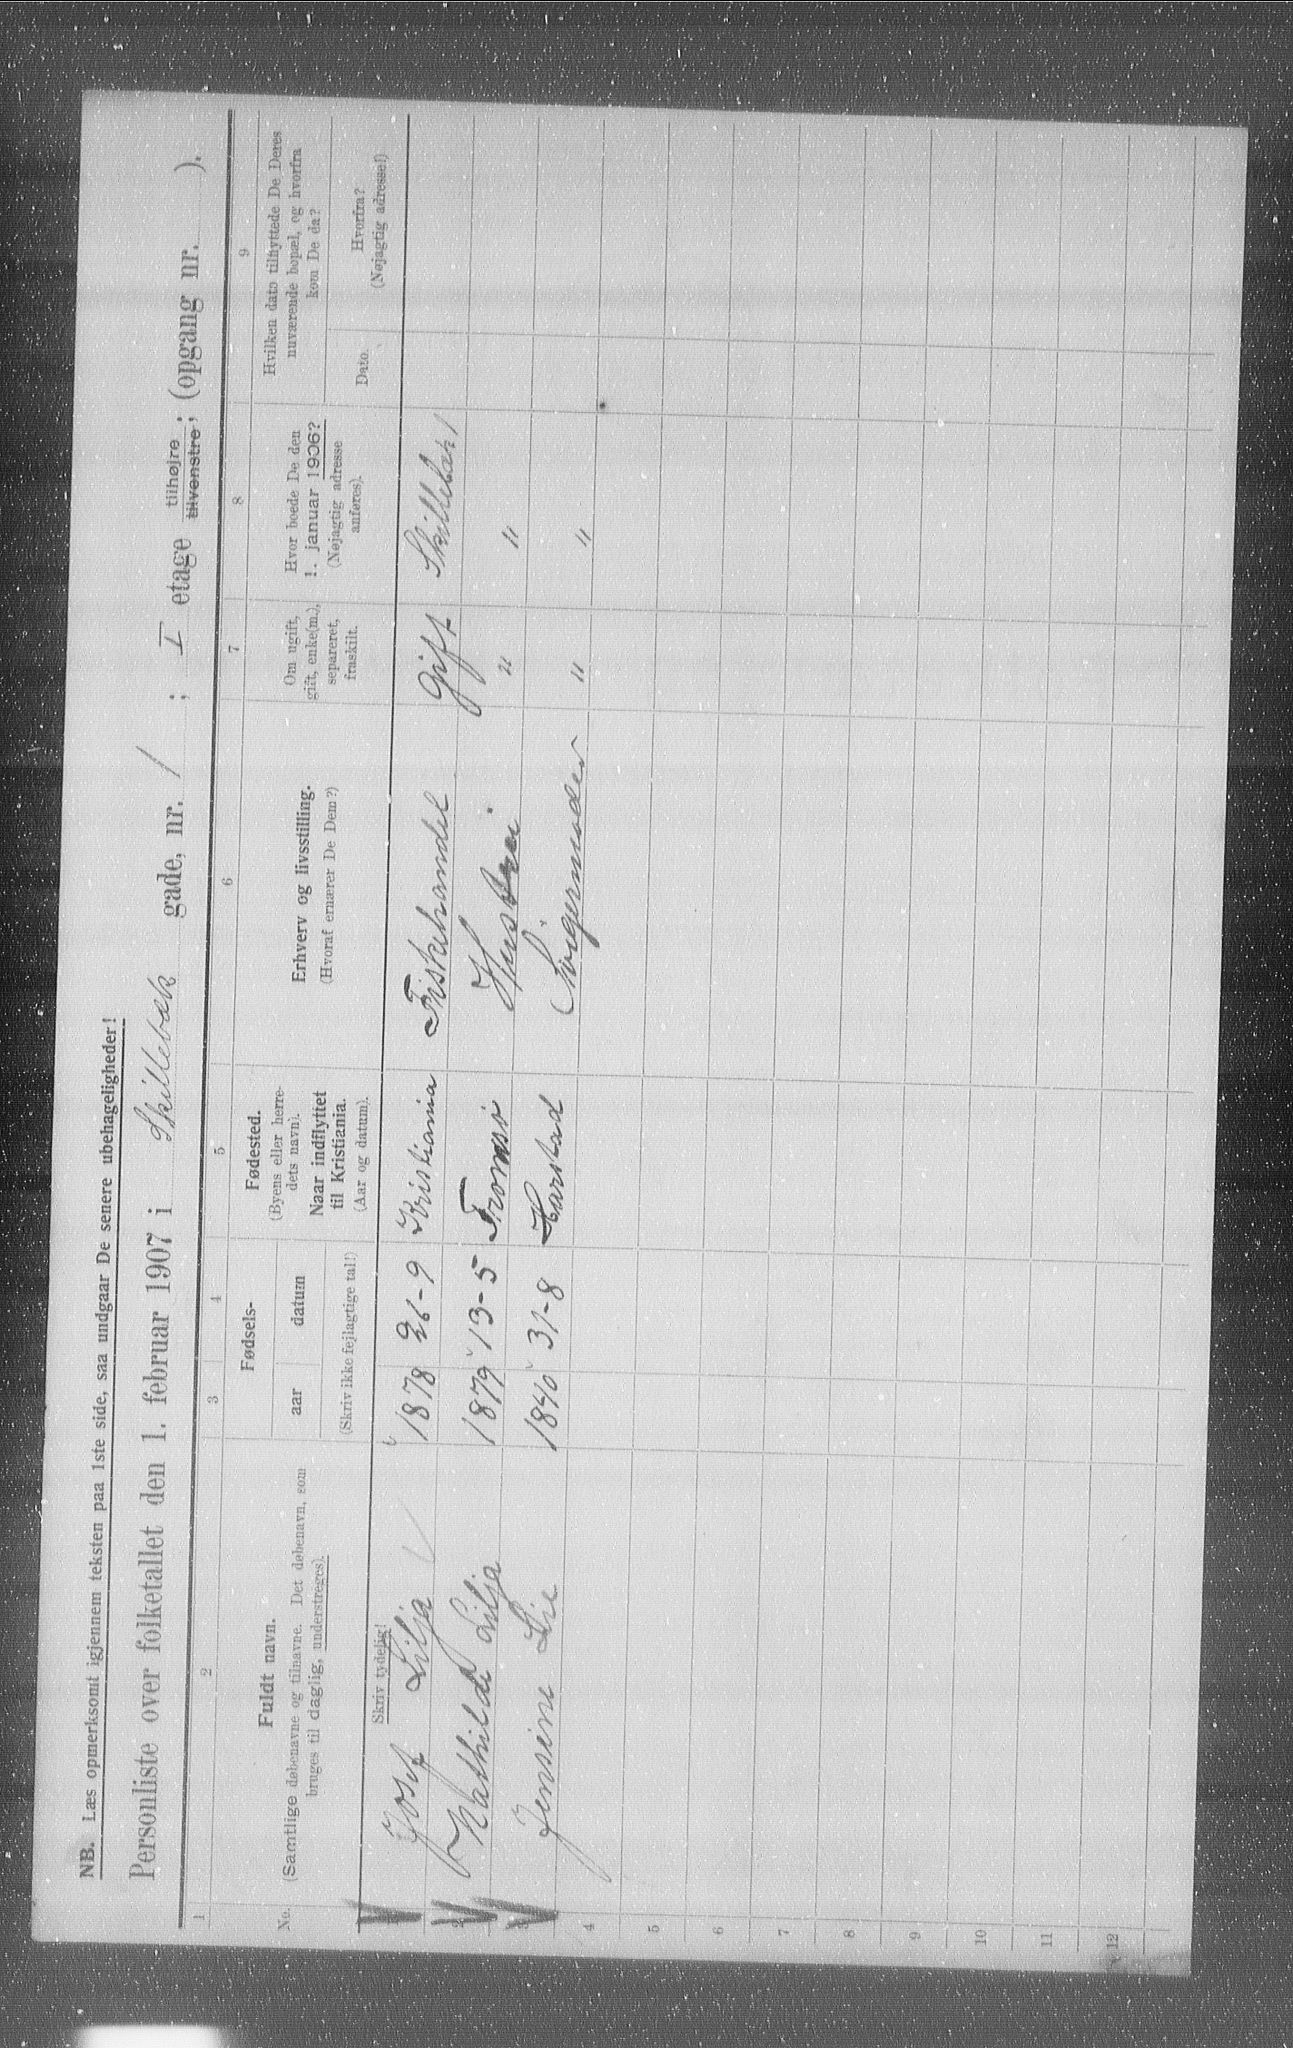 NB. Læs opmerksomt igjennem teksten paa 1ste side, saa undgaar De senere ubehageligheder!
Personliste over folketallet den 1. februar 1907 i Skillebæk gade, nr. 1 ; I etage tilhøjre ; (opgang nr. ).
tilvenstre
1 2 3 4 5 6 7 8 9
No.
Fuldt navn.
(Samtlige døbenavne og tilnavne. Det døbenavn, som
bruges til daglig, understreges).
Skriv tydelig!
Fødsels-
aar datum
(Skriv ikke fejlagtige tal!)
Fødested.
(Byens eller herre-
dets navn).
Naar indflyttet
til Kristiania.
(Aar og datum).
Erhverv og livsstilling.
(Hvoraf ernærer De Dem?)
Om ugift,
gift, enke(m.),
separeret,
fraskilt.
Hvor boede De den
1. januar 1906?
(Nøjagtig adresse
anføres).
Hvilken dato tilflyttede De Deres
nuværende bopæl, og hvorfra
kom De da?
Dato.
Hvorfra?
(Nøjagtig adresse!)
Josef Lilja 1878 26-9 Kristiania Fiskehandel Gift Skillebæk 1
2 Mathilde Lilja 1879 13-5 Tromsø Hustrei " "
Jensine Lie 1840 31-8 Harstad Svigermoder " "
4
5
6
7
8
9
10
11
12